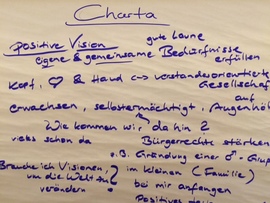 Charta
gute Laune
positive Vision
eigene & gemeinsame Bedürfnisse
erfüllen
Kopf, ♡ & Hand <-> verstandesorientierte
Gesellschaft
auf
erwachsen, selbstermächtigt, Augenhöhe
Wie kommen wir da hin?
vieles schon da Bürgerrechte stärken
z.B. Gründung einer ♂-Grup
Brauche ich Visionen, im kleinen (Familie)
um die Welt zu
verändern? bei mir anfangen
Positives